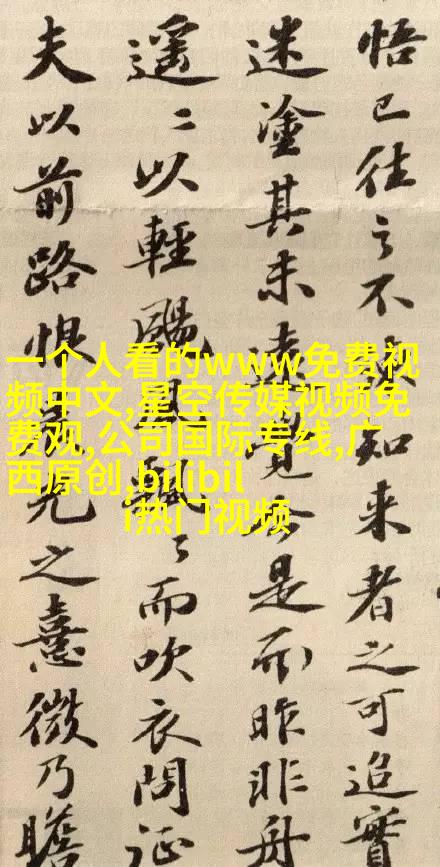 悟已往之不諫知來者之可追實
迷塗其未遠覺今是而昨非舟
遥〻以輕颺風飄〻而吹衣問征
夫以前路恨晨光之熹微乃瞻
一个人看的www免费视
频中文,星空传媒视频免
费观,公司国际专线,广
西原创,bilibil
i热门视频